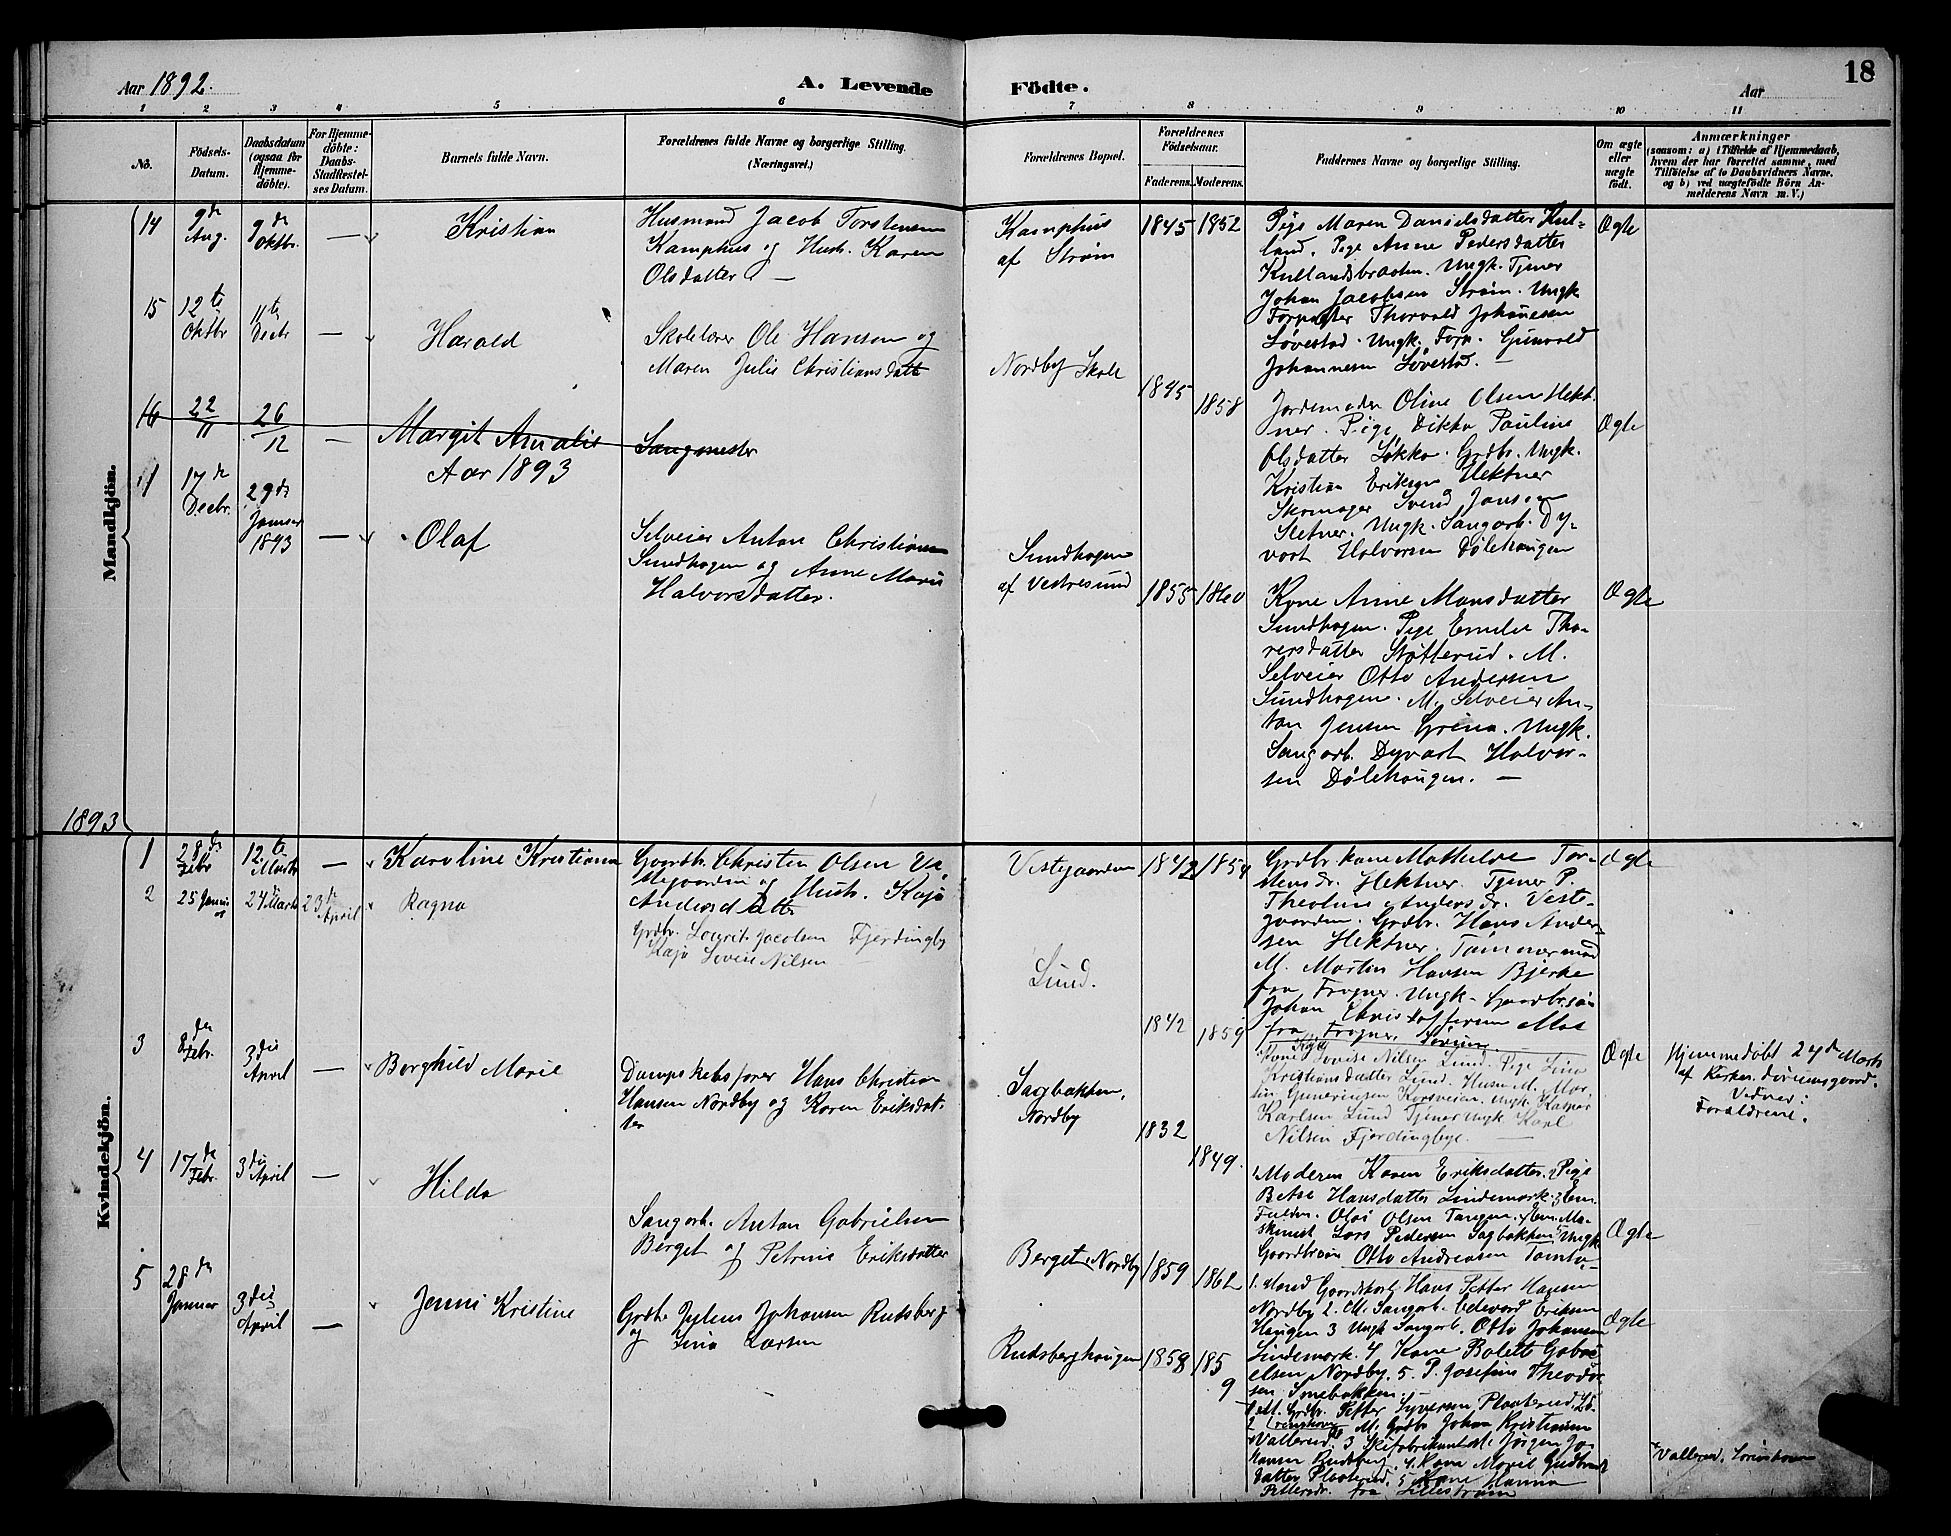 Aar 1892.
A. Levende Födte.
Aar
18
1 2 3 4 5 6 7 8 9 10 11
No.
Födsels-Datum.
Daabsdatum (ogsaa for Hjemme-döbte).
For Hjemme-döbte: Daabs-Stadfæstel-ses Datum.
Barnets fulde Navn.
Forældrenes fulde Navne og borgerlige Stilling.
(Næringsvei.)
Forældrenes Bopæl.
Forældrenes Födselsaar.
Faderens. Moderens.
Faddernes Navne og borgerlige Stilling.
Om ægte eller uægte födt.
Anmærkninger
(saasom: a) i Tilfælde af Hjemmedaab, hvem der har forrettet samme, med Tilföielse af to Daabsvidners Navne, og b) ved uægtefödte Börn An-melderens Navn m. V.)
Mandkjön.
14 9de Aug. 9de Oktbr. — Kristian
Husmand Jacob Torstensen
Kamphus og Hustr. Karen
Olsdatter —
Kamphus
af Strøm
1845 1852
Pige Maren Danielsdatter Kul-
land. Pige Anne Pedersdatter
Kullandsbraaten. Ungk. Tjener
Johan Jacobsen Strøm. Ungk.
Forpagter Thorvald Johannesen
Løvestad. Ungk. Forp. Gunvald
Johannesen Løvestad. —
Ægte
15 12te Oktbr 11te Decbr — Harald
Skolelærer Ole Hansen og
Maren Julie Christiansdatt
Nordby Skole
1845 1858
Jordemoder Oline Olsen Hekt-
ner. Pige Dikka Pauline
Olsdatter Løkka. Grdbr. Ungk.
Kristian Eriksen Hektner
Skomager Svend Jansen
Sletner. Ungk. Sangarb. Dy-
vart Halvorsen Dølehaugen
Ægte
16 22/11 26/12 — Margit Amalie
Sangmester
Aar 1893
17de Decbr. 29de Januar 1893 — Olaf
Selveier Anton Christiansen
Sundhagen og Anne Marie
Halvorsdatter.
Sundhagen
af Vestresund
1855 1860
Kone Anne Mansdatter
Sundhagen. Pige Emilie Tho-
rersdatter Støtterud. M.
Selveier Otto Andersen
Sundhagen. M. Selveier An-
ton Jensen Grina. Ungk.
Sangarb. Dyvart Halvor-
sen Dølehaugen. —
Ægte
1893
Kvindekjön.
1 28de Febr 12te Marts — Karoline Kristiane
Gaardbr. Christen Olsen Ve-
stegaarden og Hustr. Kaja
Andersdatter
Vestgaarden
1842 1854
Grdbr.kone Mathilde Tor-
stensdr. Hektner. Tjener P.
Theoline Andersdr. Veste-
gaarden. Grdbr. Hans Ander-
sen Hektner. Tømmermand
M. Martin Hansen Bjerke
fra Frogner. Ungk. Gaardbr.søn
Johan Christoffersen Moe
fra Frogner
Ægte
2 25 Januar 24de Marts 23de April Ragna
Grdbr. Laurits Jacobsen Fjerdingby
Kaja Lovise Nilsen —
Lund.
1842 1859
Kone Lovise Nilsen Lund. Pige Lina
Kristiansdatter Lund. Husm. M. Mar-
tin Korsveien. Ungk. Kasper
Karlsen Lund Tjener Ungk. Karl
Nilsen Fjerdingbye. —
Ægte
Hjemmedøbt 24de Marts
af Kirkes.
Vidner:
Forældrene.
3 8de Febr. 3die April — Borghild Marie
Dampskibsfører Hans Christian
Hansen Nordby og Karen Eriksdat-
ter
Sagbakken,
Nordby
1832 1849.
1. Moderen Karen Eriksdatter. 2 Pige
Betsa Hansdatter Lindemark. 3 Em.
Fuldm. Olai Olsen Tangen. 4 Em. Ma-
skinist Lars Pedersen Sagbakken 5 Ungk.
Gaardbrsøn Otto Andreasen Tomta.
Ægte
4 17de Febr. 3die April — Hilda
Sangarb. Anton Gabrielsen
Berget og Petrine Eriksdatter
Berget, Nordby
1859 1862
1. Mand Gaardskarl Hans Petter Hansen
Nordby 2. M. Sangarb. Edevard Eriksen
Haugen 3 Ungk Sangarb. Otto Johansen
Lindemark. 4 Kone Bolette Gabri-
elsen Nordby. 5 P. Josefine Theodor-
sen
Ægte
5 28de Januar 3die April — Jenni Kristine
Grdbr. Julius Johansen Rudsberg
og Lina Larsen
Rudsberghaugen
1858 1859
1 M. Grdbr. Petter Syversen Plaaterud
2 M. Grdbr Johan Kristiansen
Vallerud. 3 Skifabrikant M. Jørgen Jo-
hansen Rudsberg. 4. Kone Maril Gudbrands-
datter Plaaterud. 5 Kone Hanna
Pettersdr. fra Lillestrøm
Vallerud.